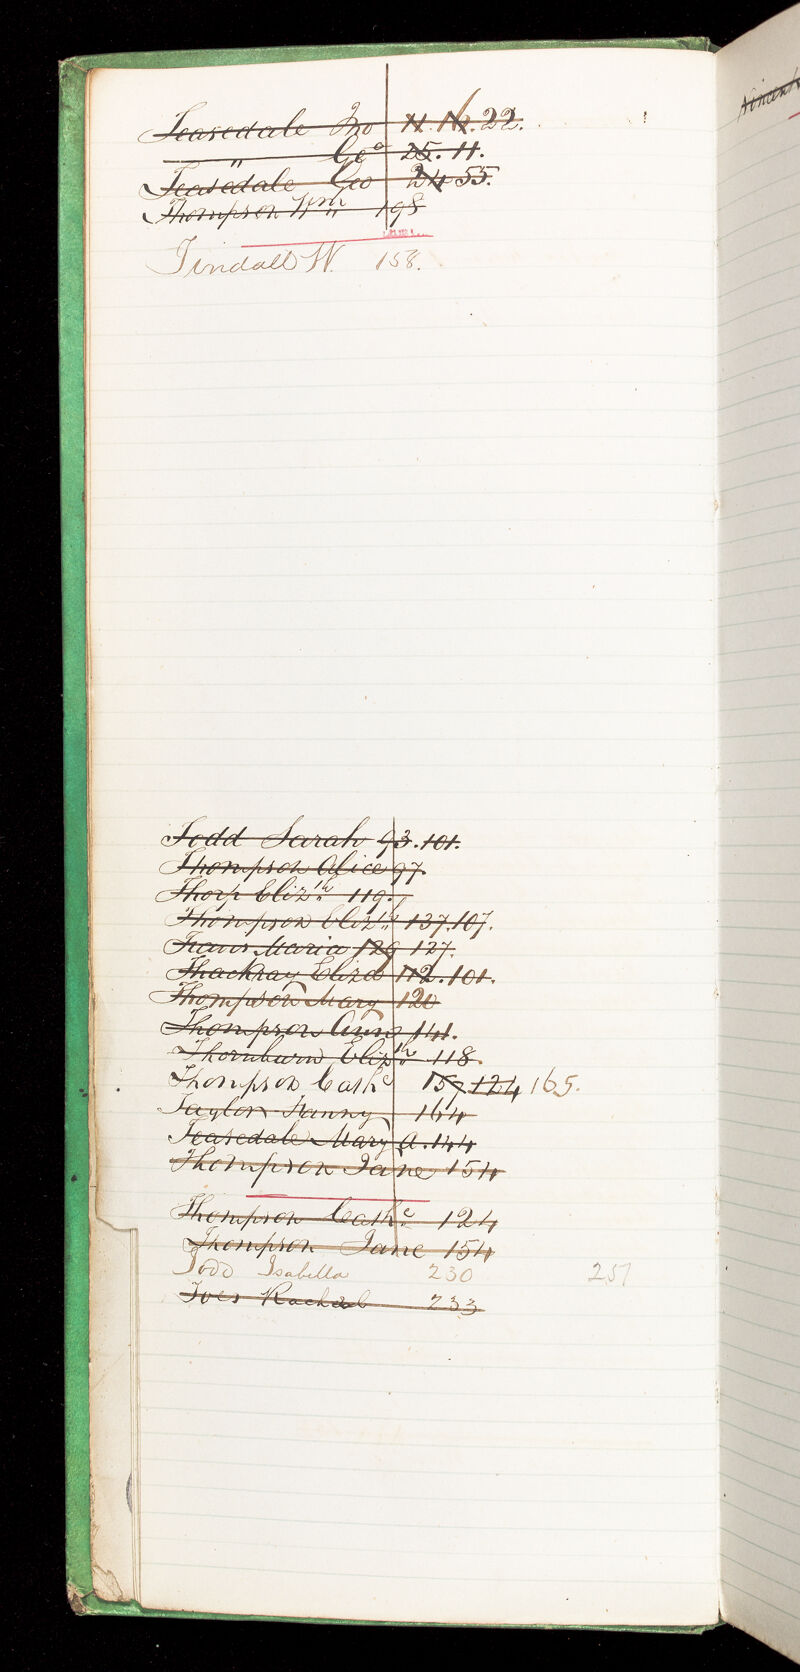 Teasedale Jno 11. 16. 22.
" Geo 25. 11.
Teasedale Geo 24 55.
Thompson Wm 198
Tindall W. 158.
Todd Sarah 93. 101.
Thompson Alice 97.
Thorp Elizth 119.
Thompson Elizth 137. 107.
Travis Maria 129 127.
Thackray Eliza 112. 101.
Thompson Mary 120
Thompson Anne 141.
Thornburn Elizth 118.
Thompson Cathe 157 124 165.
Taylor Hanny 164
Teasedale Mary A. 144
Thompson Jane 154
Thompson Cathe 124
Thompson Jane 154
Todd Isabella 230 251
Toes Rachael 233